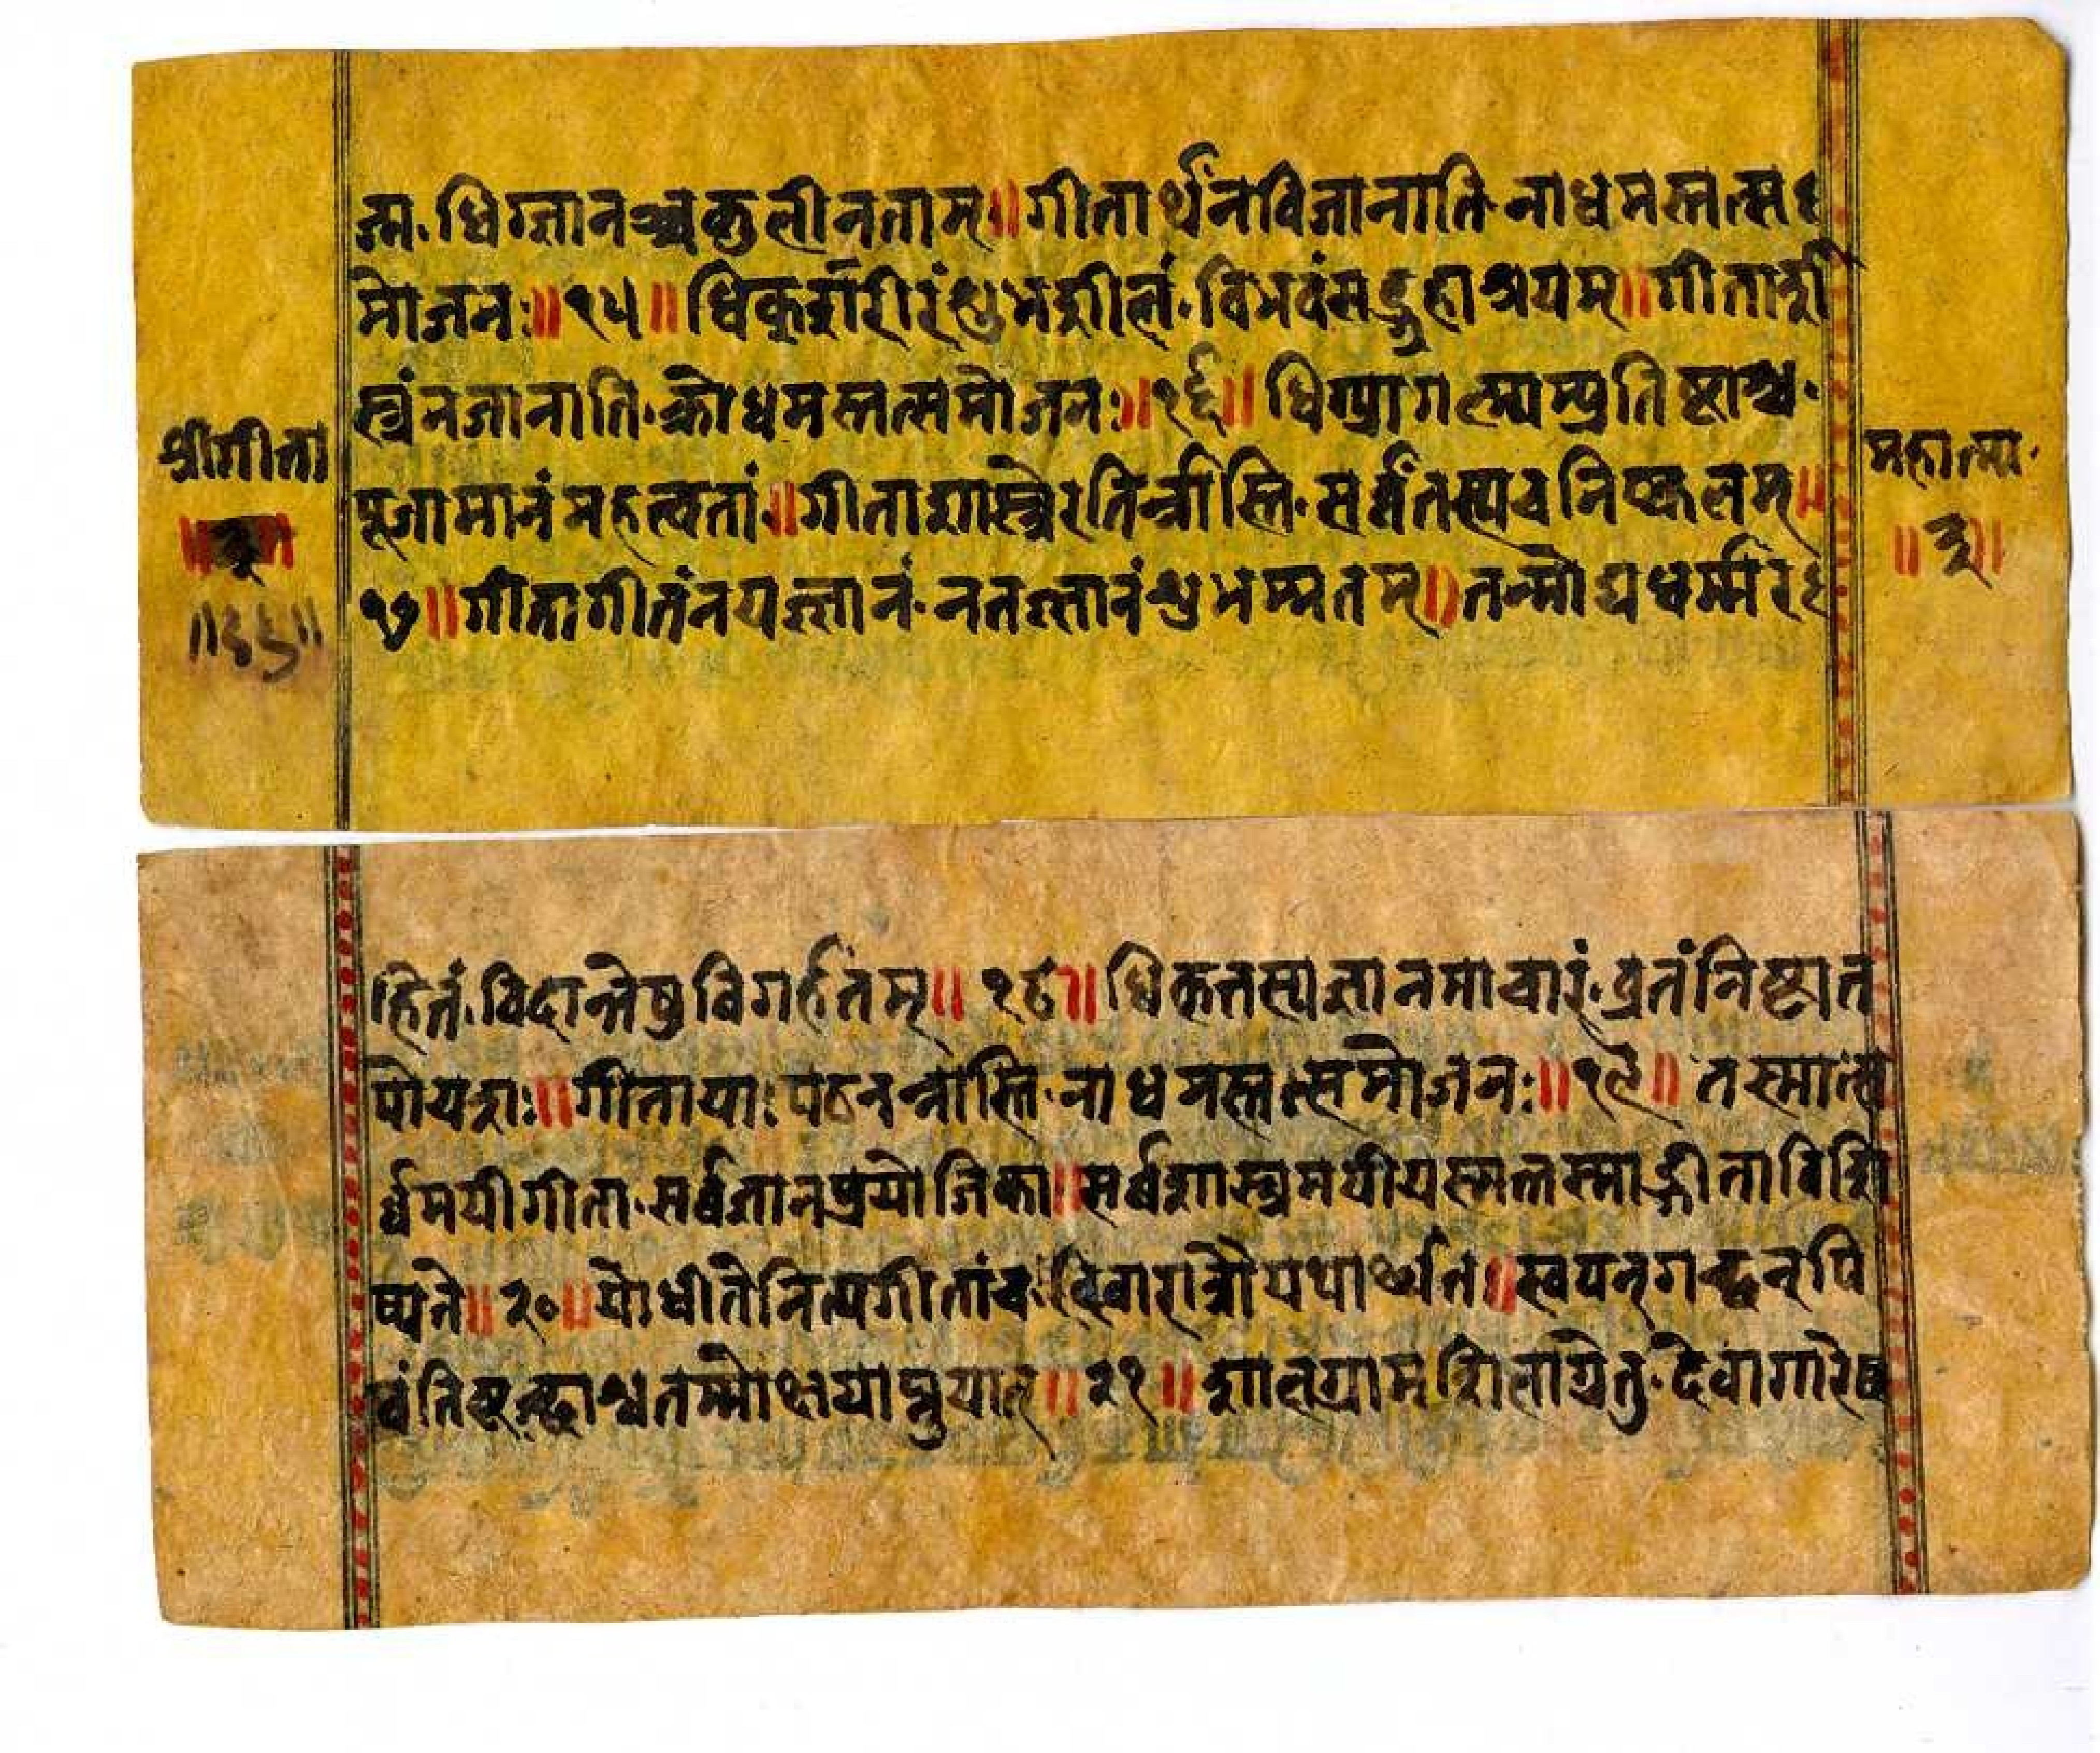 त्म.धिग्ज्ञानञ्चकुलीनताम्॥गीतार्थंनविजानाति.नाधमस्तत्स
मोजनः॥१५॥धिक्शरीरंशुभशीलं.विभवंसद्गृहाश्रयम्॥गीताशा
स्त्रंनजानाति.कोधमस्तत्समोजनः॥१६॥धिग्प्रागल्भ्यम्प्रतिष्टाञ्च.
पूजामानंमहत्वतां॥गीताशास्त्रेरतिर्न्नास्ति.सर्वंतस्यचनिष्फलम्॥
१७॥गीतागीतंनयज्ज्ञानं.नतज्ज्ञानंशुभम्मतम्॥तन्मोघधर्म्मर
श्रीगीता
॥३॥
महात्मा.
॥३॥
हितं.विदान्तेषुविगर्हितम्॥१८॥धिकतस्यज्ञानमाचारं.व्रतंनिष्टात
पोयशः॥गीतायाःपठनन्नास्ति.नाधमस्तत्समोजनः॥१९॥तस्मात्स
र्वमयीगीता.सर्वज्ञानप्रयोजिका॥सर्वशास्त्रमयीयस्मत्तस्माद्गीताविशि
ष्यते॥२०॥योधीतेनित्यगीतांच.दिवारात्रौयथार्थ्थत॥स्वयन्गच्छन्पि
वंतिष्टन्च्छाश्वतम्मोक्षयाप्नुयात्॥२१॥शालग्रामशिलाग्रेतु.देवागारे